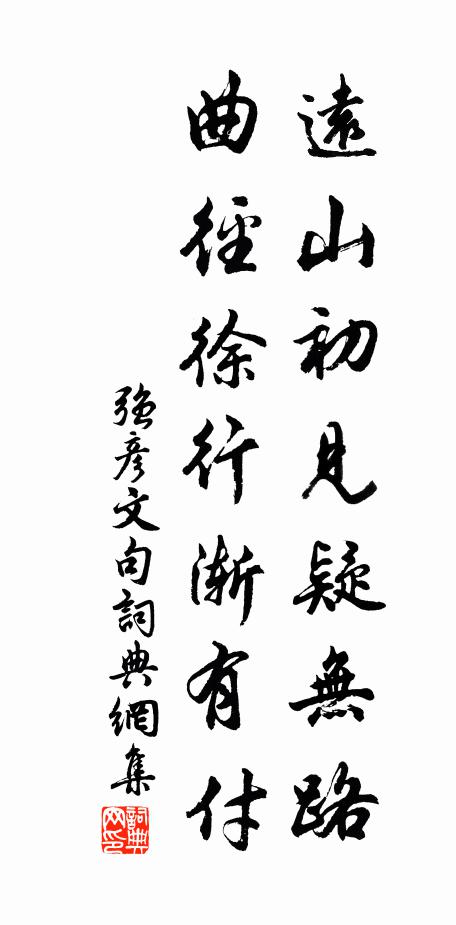 遠山初見疑無路
曲徑徐行漸有村
強彥文句詞典網集
詞典
网印